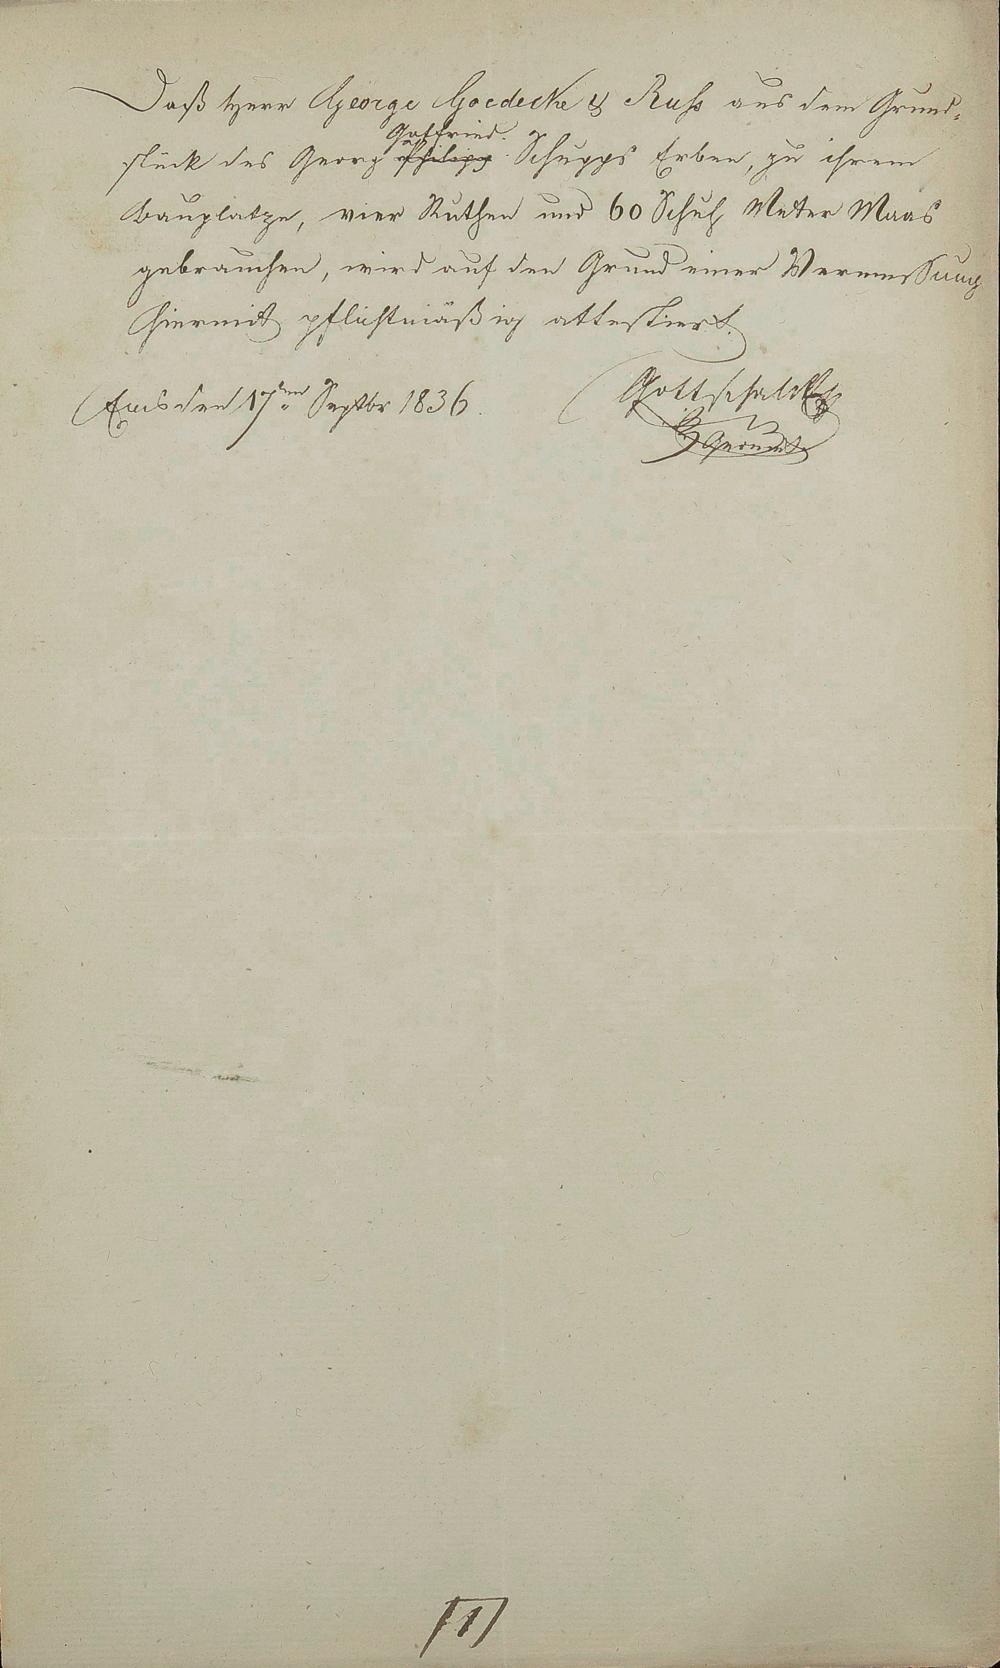 Daß Herr George Goedecke & Russ aus dem Grund-
Gottfried.
stück des Georg Philipp Schupps Erben, zu ihrem
Bauplatze, vier Ruthen und 60 Schuh Meter Maas
gebrauchen, wird auf den Grund einer Vermessung
hiermit pflichtmäßig attestiert.
Ems den 17ten Septbr 1836.
Gottschalck
Geomet
1